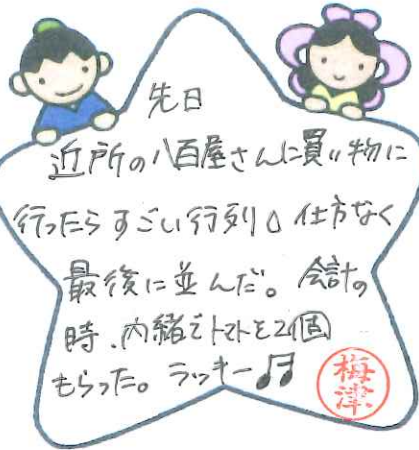 先日
近所の八百屋さんに買い物に
行ったらすごい行列。仕方なく
最後に並んだ。会計の
時、内緒でトマトを2個
もらった。ラッキー🎵
梅津